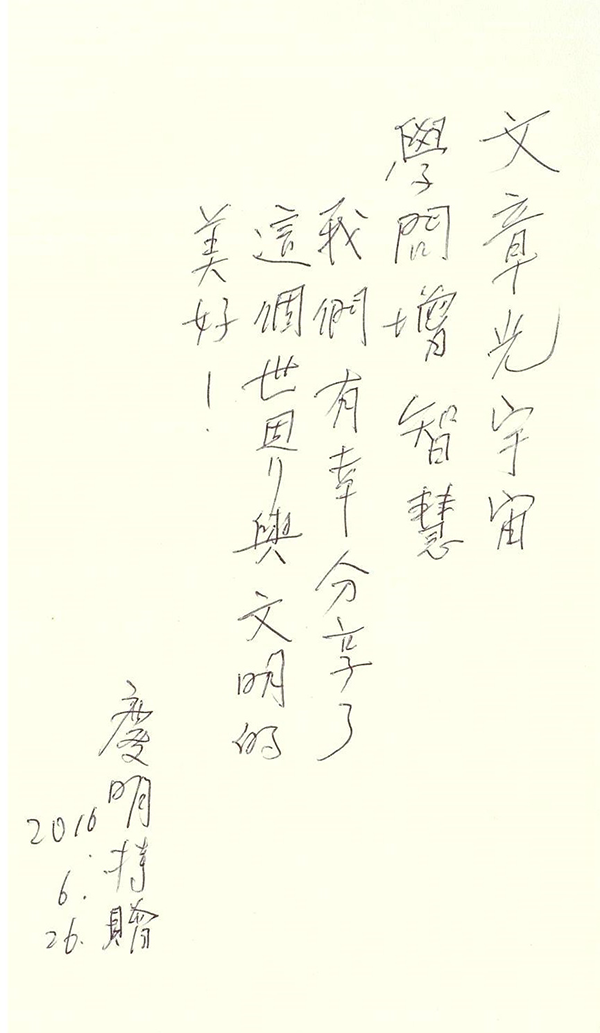 文章光宇宙
學問增智慧
我們有幸分享了
這個世界與文明的
美好！
慶明持贈
2016.
6.
26.